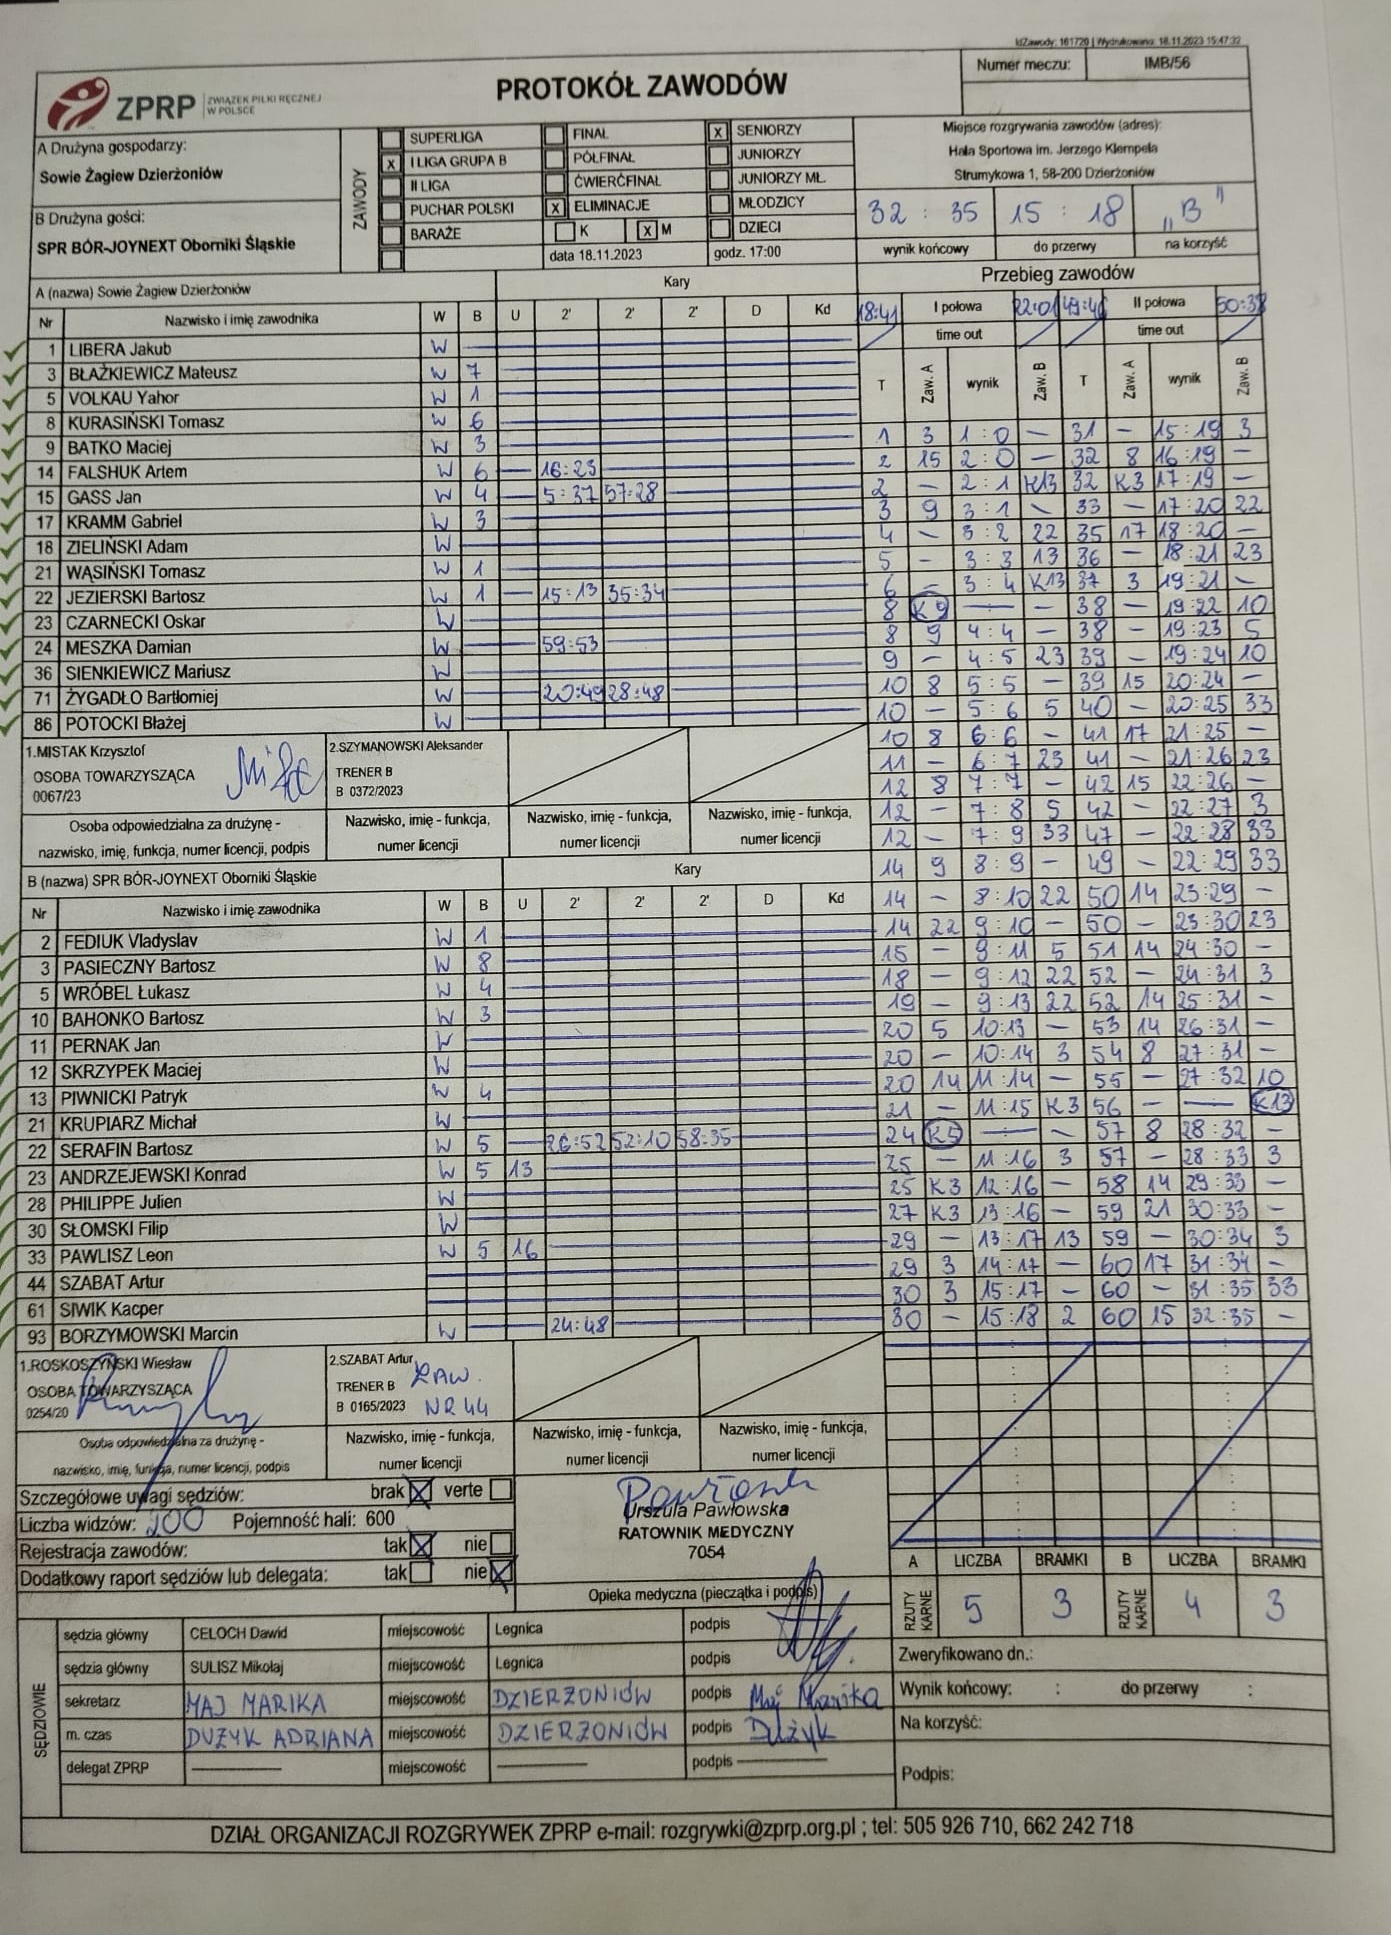 IdZawody: 161720 | Wydrukowano: 18.11.2023 15:47:32
Numer meczu: IMB/56
ZPRP ZWIĄZEK PIŁKI RĘCZNEJ W POLSCE
PROTOKÓŁ ZAWODÓW
A Drużyna gospodarzy:
Sowie Żagiew Dzierżoniów
B Drużyna gości:
SPR BÓR-JOYNEXT Oborniki Śląskie
ZAWODY
SUPERLIGA
X I LIGA GRUPA B
II LIGA
PUCHAR POLSKI
BARAŻE
FINAŁ
PÓŁFINAŁ
ĆWIERĆFINAŁ
X ELIMINACJE
K X M
data 18.11.2023
X SENIORZY
JUNIORZY
JUNIORZY MŁ.
MŁODZICY
DZIECI
godz. 17:00
Miejsce rozgrywania zawodów (adres):
Hala Sportowa im. Jerzego Klempela
Strumykowa 1, 58-200 Dzierżoniów
32 : 35 15 : 18 „B"
wynik końcowy do przerwy na korzyść
A (nazwa) Sowie Żagiew Dzierżoniów Kary
Nr Nazwisko i imię zawodnika W B U 2' 2' 2' D Kd
1 LIBERA Jakub W
3 BŁAŻKIEWICZ Mateusz W 7
5 VOLKAU Yahor W 1
8 KURASIŃSKI Tomasz W 6
9 BATKO Maciej W 3
14 FALSHUK Artem W 6 — 16:23
15 GASS Jan W 4 — 5:37 57:28
17 KRAMM Gabriel W 3
18 ZIELIŃSKI Adam W
21 WĄSIŃSKI Tomasz W 1
22 JEZIERSKI Bartosz W 1 — 15:13 35:34
23 CZARNECKI Oskar W
24 MESZKA Damian W 59:53
36 SIENKIEWICZ Mariusz W
71 ŻYGADŁO Bartłomiej W 20:49 28:48
86 POTOCKI Błażej W
1.MISTAK Krzysztof
OSOBA TOWARZYSZĄCA
0067/23
2.SZYMANOWSKI Aleksander
TRENER B
B 0372/2023
Osoba odpowiedzialna za drużynę -
nazwisko, imię, funkcja, numer licencji, podpis
Nazwisko, imię - funkcja,
numer licencji
Nazwisko, imię - funkcja,
numer licencji
Nazwisko, imię - funkcja,
numer licencji
B (nazwa) SPR BÓR-JOYNEXT Oborniki Śląskie Kary
Nr Nazwisko i imię zawodnika W B U 2' 2' 2' D Kd
2 FEDIUK Vladyslav W 1
3 PASIECZNY Bartosz W 8
5 WRÓBEL Łukasz W 4
10 BAHONKO Bartosz W 3
11 PERNAK Jan W
12 SKRZYPEK Maciej W
13 PIWNICKI Patryk W 4
21 KRUPIARZ Michał W
22 SERAFIN Bartosz W 5 — 26:52 52:10 58:35
23 ANDRZEJEWSKI Konrad W 5 13
28 PHILIPPE Julien W
30 SŁOMSKI Filip W
33 PAWLISZ Leon W 5 16
44 SZABAT Artur
61 SIWIK Kacper
93 BORZYMOWSKI Marcin W 24:48
1.ROSKOSZYŃSKI Wiesław
OSOBA TOWARZYSZĄCA
0254/20
2.SZABAT Artur
TRENER B ZAW.
B 0165/2023 NR 44
Osoba odpowiedzialna za drużynę -
nazwisko, imię, funkcja, numer licencji, podpis
Nazwisko, imię - funkcja,
numer licencji
Nazwisko, imię - funkcja,
numer licencji
Nazwisko, imię - funkcja,
numer licencji
Przebieg zawodów
18:41 I połowa 22:01 49:46 II połowa 50:38
time out time out
T Zaw. A wynik Zaw. B T Zaw. A wynik Zaw. B
1 3 1:0 — 31 — 15:19 3
2 15 2:0 — 32 8 16:19 —
2 — 2:1 K13 32 K3 17:19 —
3 9 3:1 — 33 — 17:20 22
4 — 3:2 22 35 17 18:20 —
5 — 3:3 13 36 — 18:21 23
6 — 3:4 K13 37 3 19:21 —
8 K9 — — 38 — 19:22 10
8 9 4:4 — 38 — 19:23 5
9 — 4:5 23 39 — 19:24 10
10 8 5:5 — 39 15 20:24 —
10 — 5:6 5 40 — 20:25 33
10 8 6:6 — 41 17 21:25 —
11 — 6:7 23 41 — 21:26 23
12 8 7:7 — 42 15 22:26 —
12 — 7:8 5 42 — 22:27 3
12 — 7:9 33 47 — 22:28 33
14 9 8:9 — 49 — 22:29 33
14 — 8:10 22 50 14 23:29 —
14 22 9:10 — 50 — 23:30 23
15 — 9:11 5 51 14 24:30 —
18 — 9:12 22 52 — 24:31 3
19 — 9:13 22 52 14 25:31 —
20 5 10:13 — 53 14 26:31 —
20 — 10:14 3 54 8 27:31 —
20 14 11:14 — 55 — 27:32 10
21 — 11:15 K3 56 — — K13
24 K5 — — 57 8 28:32 —
25 — 11:16 3 57 — 28:33 3
25 K3 12:16 — 58 14 29:33 —
27 K3 13:16 — 59 21 30:33 —
29 — 13:17 13 59 — 30:34 3
29 3 14:17 — 60 17 31:34 —
30 3 15:17 — 60 — 31:35 33
30 — 15:18 2 60 15 32:35 —
Szczegółowe uwagi sędziów: brak X verte
Liczba widzów: 200 Pojemność hali: 600
Rejestracja zawodów: tak X nie
Dodatkowy raport sędziów lub delegata: tak nie X
Urszula Pawłowska
RATOWNIK MEDYCZNY
7054
Opieka medyczna (pieczątka i podpis)
A LICZBA BRAMKI B LICZBA BRAMKI
RZUTY KARNE 5 3 RZUTY KARNE 4 3
SĘDZIOWIE
sędzia główny CELOCH Dawid miejscowość Legnica podpis
sędzia główny SULISZ Mikołaj miejscowość Legnica podpis
sekretarz MAJ MARIKA miejscowość DZIERŻONIÓW podpis Maj Marika
m. czas DUŻYK ADRIANA miejscowość DZIERŻONIÓW podpis Dużyk
delegat ZPRP — miejscowość — podpis —
Zweryfikowano dn.:
Wynik końcowy: : do przerwy :
Na korzyść:
Podpis:
DZIAŁ ORGANIZACJI ROZGRYWEK ZPRP e-mail: rozgrywki@zprp.org.pl ; tel: 505 926 710, 662 242 718